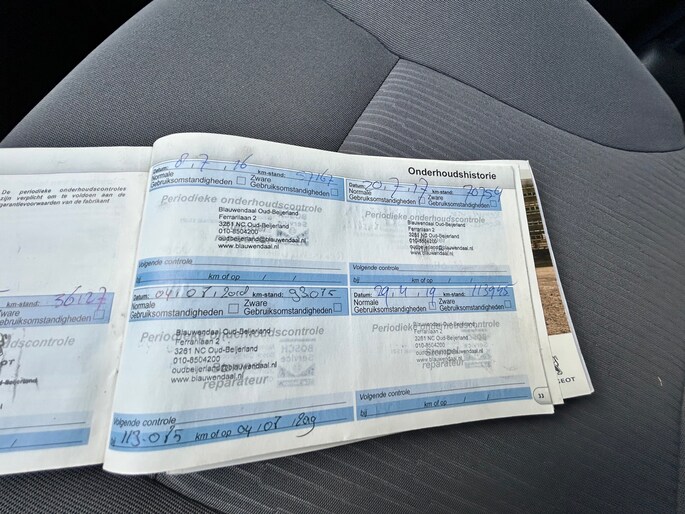 De periodieke onderhoudscontroles
zijn verplicht om te voldoen aan de
garantievoorwaarden van de fabrikant
Onderhoudshistorie
Datum: 8.7.16 km-stand:
Normale Zware
Gebruiksomstandigheden Gebruiksomstandigheden
Periodieke onderhoudscontrole
Blauwendaal Oud-Beijerland
Ferrarilaan 2
3261 NC Oud-Beijerland
010-8504200
oudbeijerland@blauwendaal.nl
www.blauwendaal.nl
Volgende controle
bij km of op / /
Datum: 20.7.17 km-stand:
Normale Zware
Gebruiksomstandigheden Gebruiksomstandigheden
Periodieke onderhoudscontrole
Blauwendaal Oud-Beijerland
Ferrarilaan 2
3261 NC Oud-Beijerland
010-8504200
oudbeijerland@blauwendaal.nl
www.blauwendaal.nl
Volgende controle
bij km of op / /
km-stand: 56127
Zware
Gebruiksomstandigheden
Datum: 04/07/2018 km-stand: 93015
Normale Zware
Gebruiksomstandigheden Gebruiksomstandigheden
Periodieke onderhoudscontrole
Blauwendaal Oud-Beijerland
Ferrarilaan 2
3261 NC Oud-Beijerland
010-8504200
oudbeijerland@blauwendaal.nl
www.blauwendaal.nl
reparateur
Volgende controle
bij 113.015 km of op 04/07/2019
Datum: 29.4.19 km-stand: 113945
Normale Zware
Gebruiksomstandigheden Gebruiksomstandigheden
Periodieke onderhoudscontrole
Blauwendaal Oud-Beijerland
Ferrarilaan 2
3261 NC Oud-Beijerland
010-8504200
Stempel
oudbeijerland@blauwendaal.nl
www.blauwendaal.nl
reparateur
Volgende controle
bij km of op / /
33